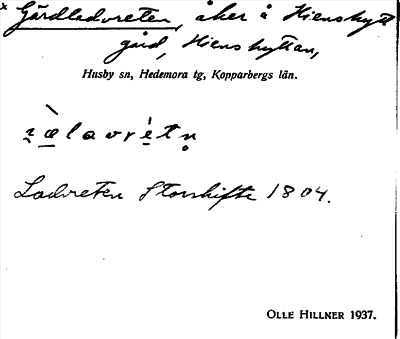 x Gärdladvreten, åker å Hienshytte
gård, Hienshyttan,
Husby sn, Hedemora tg, Kopparbergs län.
Ladvreten Storskifte 1804.
OLLE HILLNER 1937.